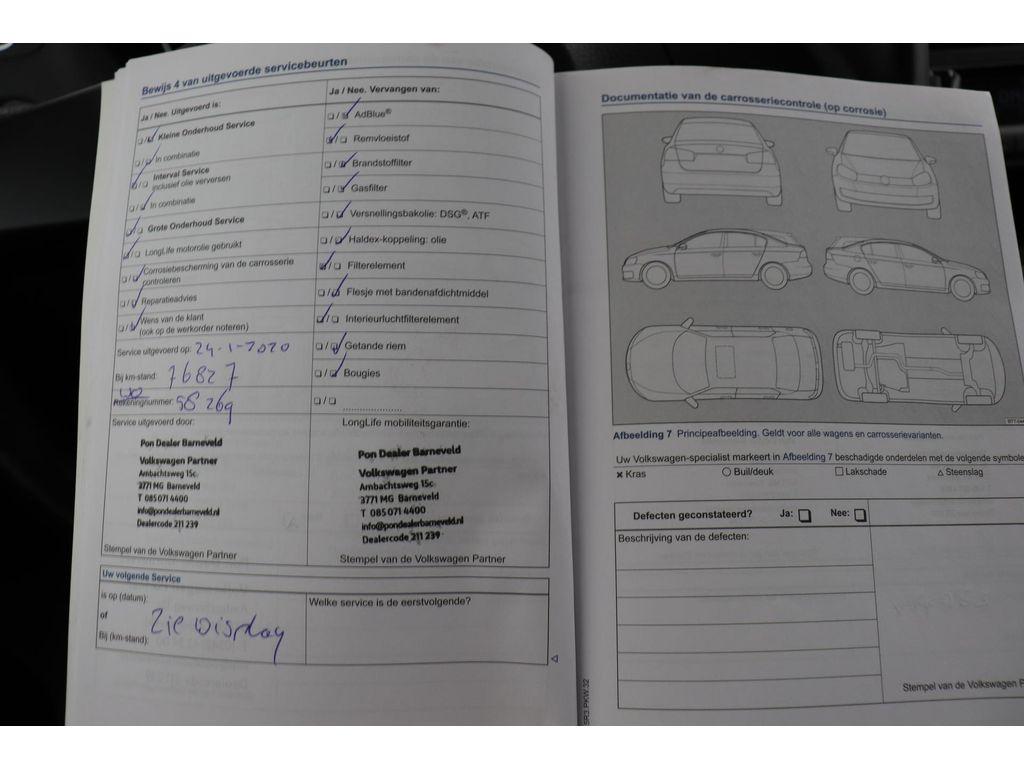 Bewijs 4 van uitgevoerde servicebeurten
Ja / Nee. Uitgevoerd is:
Kleine Onderhoud Service
In combinatie
Interval Service
inclusief olie verversen
In combinatie
Grote Onderhoud Service
LongLife motorolie gebruikt
Corrosiebescherming van de carrosserie
controleren
Reparatieadvies
Wens van de klant
(ook op de werkorder noteren)
Service uitgevoerd op: 24-1-2020
Bij km-stand: 76827
WO
Rekeningnummer: 58269
Service uitgevoerd door:
Pon Dealer Barneveld
Volkswagen Partner
Ambachtsweg 15c
3771 MG Barneveld
T 085 071 4400
info@pondealerbarneveld.nl
Dealercode 211 239
Stempel van de Volkswagen Partner
Ja / Nee. Vervangen van:
AdBlue®
Remvloeistof
Brandstoffilter
Gasfilter
Versnellingsbakolie: DSG®, ATF
Haldex-koppeling: olie
Filterelement
Flesje met bandenafdichtmiddel
Interieurluchtfilterelement
Getande riem
Bougies
LongLife mobiliteitsgarantie:
Pon Dealer Barneveld
Volkswagen Partner
Ambachtsweg 15c
3771 MG Barneveld
T 085 071 4400
info@pondealerbarneveld.nl
Dealercode 211 239
Stempel van de Volkswagen Partner
Uw volgende Service
is op (datum):
of
Bij (km-stand):
Zie Display
Welke service is de eerstvolgende?
Documentatie van de carrosseriecontrole (op corrosie)
Afbeelding 7 Principeafbeelding. Geldt voor alle wagens en carrosserievarianten.
Uw Volkswagen-specialist markeert in Afbeelding 7 beschadigde onderdelen met de volgende symbole
× Kras
Buil/deuk
Lakschade
△ Steenslag
Defecten geconstateerd? Ja: Nee:
Beschrijving van de defecten:
Stempel van de Volkswagen P
SR3.PKW.32